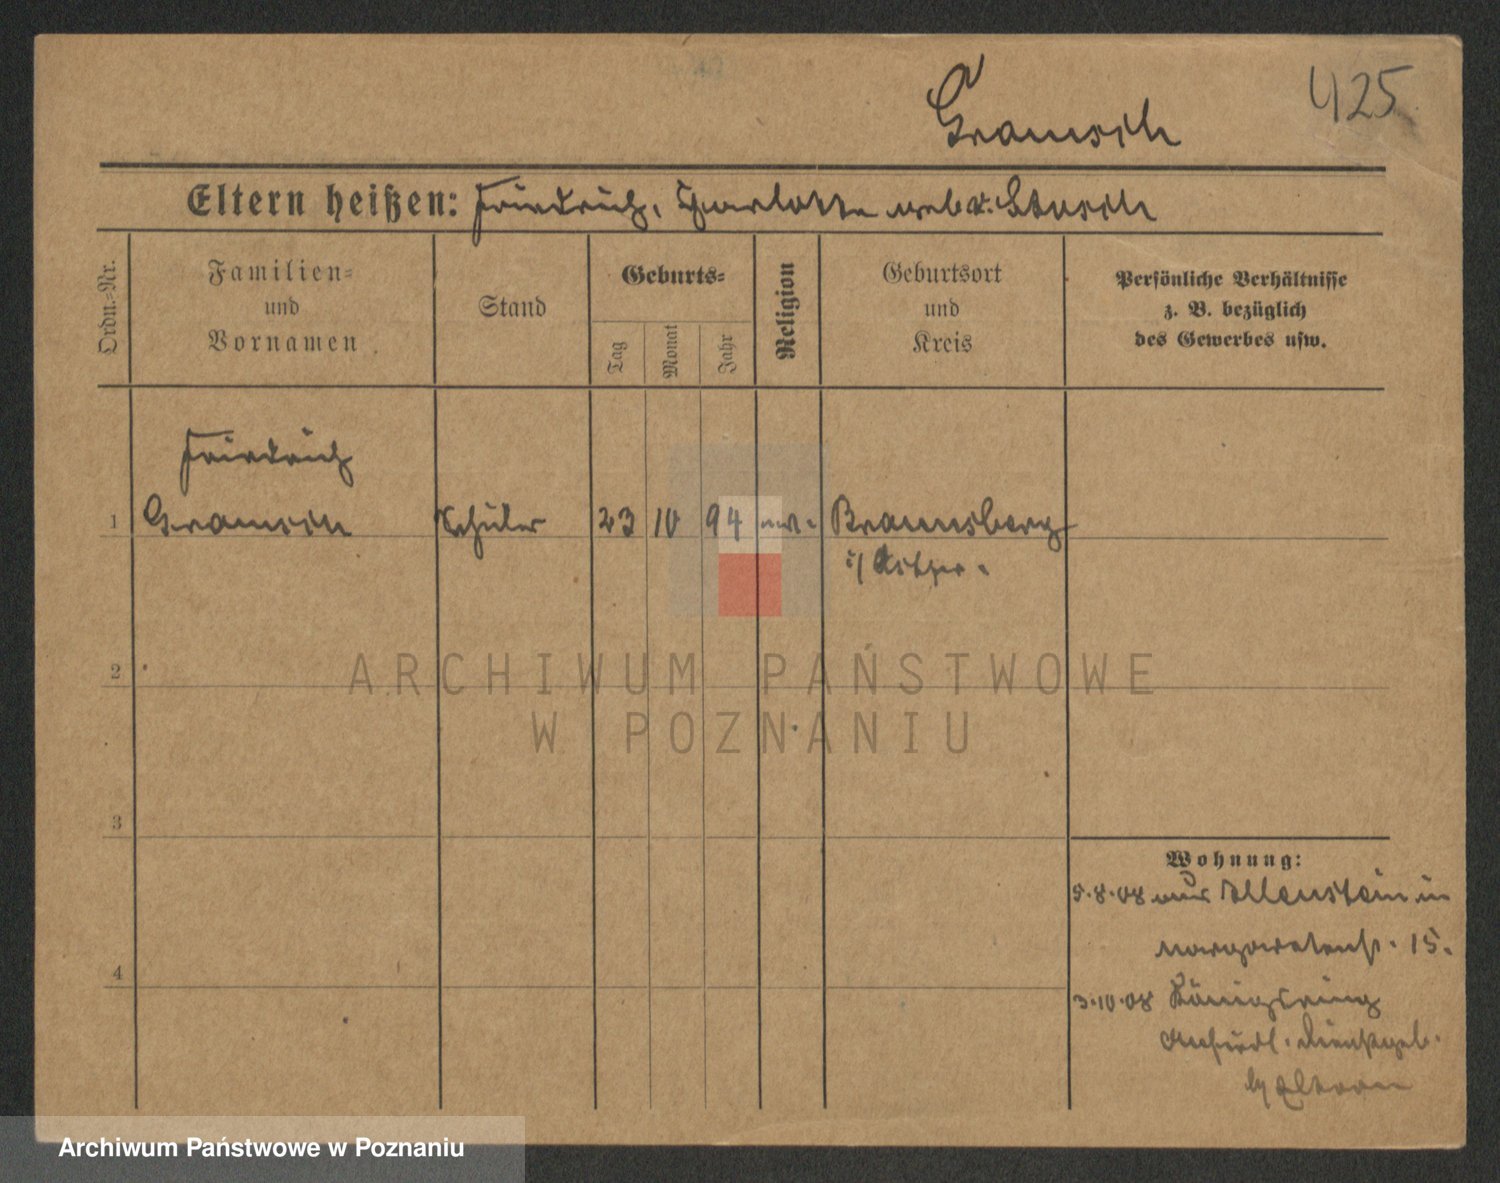 Gramsch
425
Eltern heißen: Friedrich, Charlotte geb.
Ordn.=Nr.
Familien=
und
Vornamen
Stand
Geburts=
Tag
Monat
Jahr
Religion
Geburtsort
und
Kreis
Persönliche Verhältnisse
z. B. bezüglich
des Gewerbes usw.
Friedrich
1 Gramsch Schüler 23 10 94 ev. Braunsberg
i/ Ostpr.
2
ARCHIWUM PAŃSTWOWE
W POZNANIU
3
4
Wohnung:
5.8.08 aus Allenstein in
Margaretenst. 15.
3.10.08 Königsring
Dienstgeb.
b/ Eltern
Archiwum Państwowe w Poznaniu